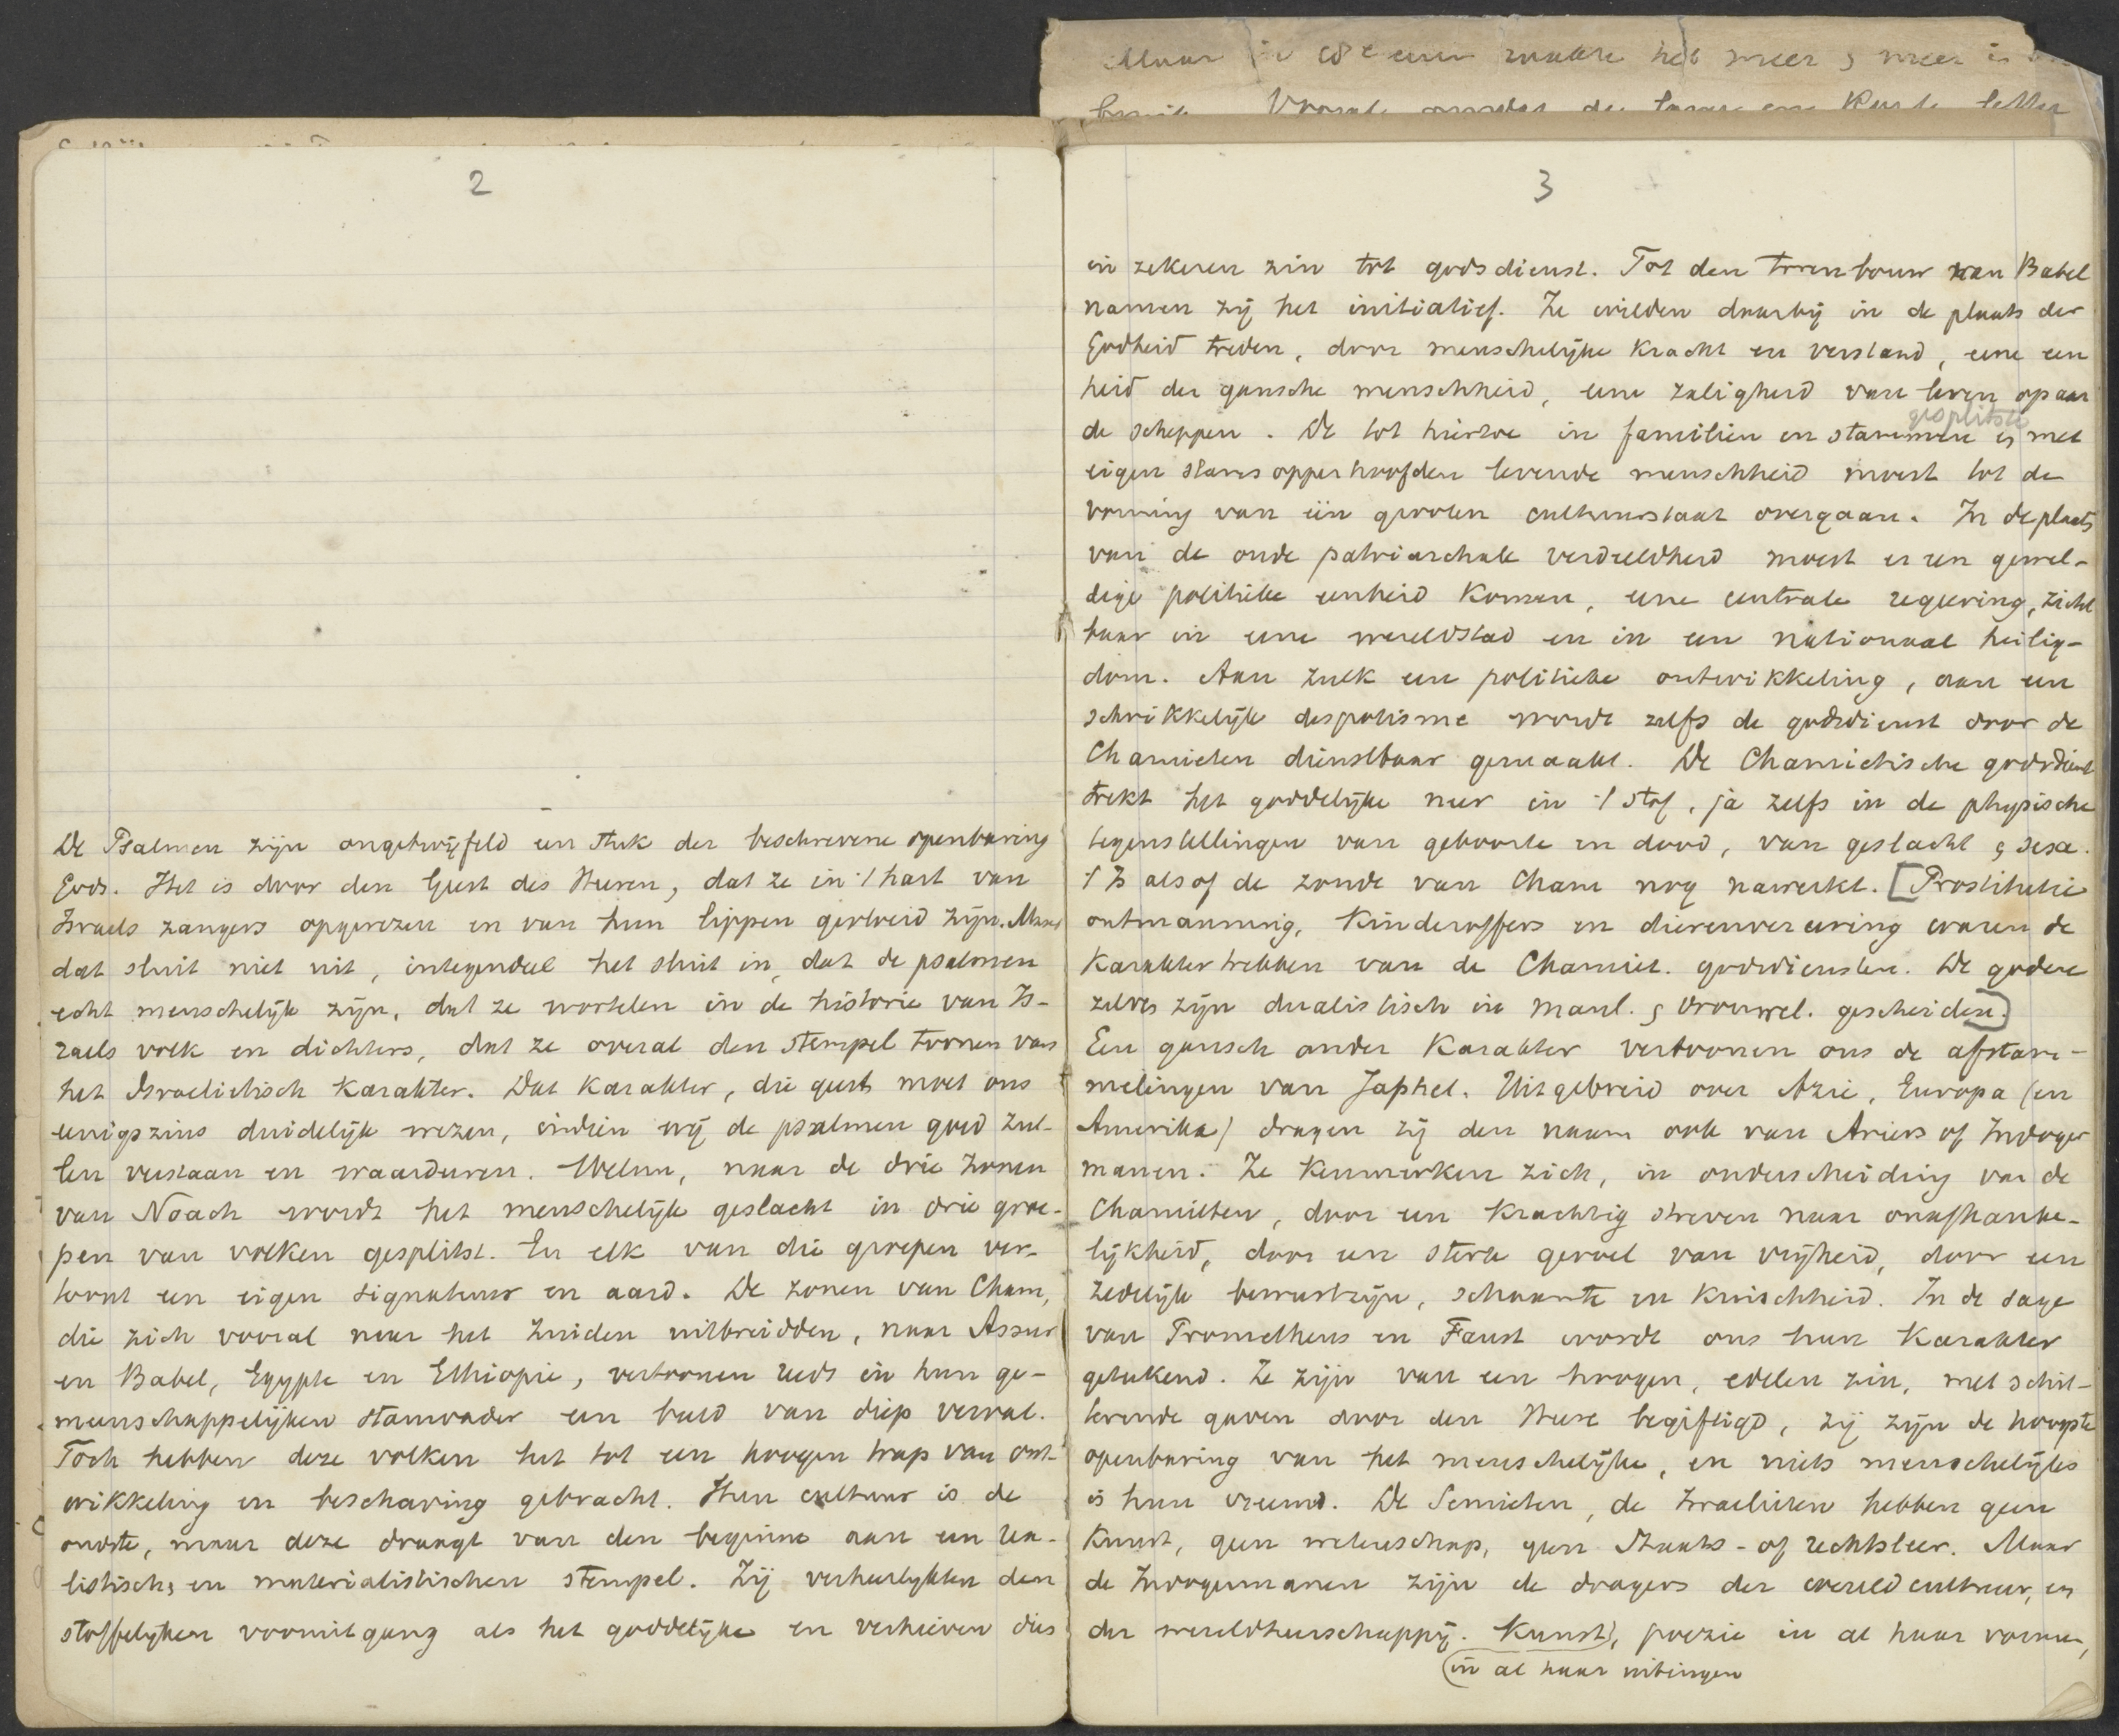 2
De Psalmen zijn ongetwijfeld een stuk der beschrevene openbaring
Gods. Het is door den Geest des Heeren, dat ze in 't hart van
Israels zangers opgerezen en van hun lippen gevloeid zijn. Maar
dat sluit niet uit, integendeel het sluit in, dat de psalmen
echt menschelijk zijn, dat ze wortelen in de historie van Is-
raels volk en dichters, dat ze overal den stempel toonen van
het Israelietisch karakter. Dat karakter, die geest moet ons
eenigszins duidelijk wezen, indien wij de psalmen goed zul-
len verstaan en waardeeren. Welnu, naar de drie zonen
van Noach wordt het menschelijk geslacht in drie groe-
pen van volken gesplitst. En elk van die groepen ver-
toont een eigen signatuur en aard. De zonen van Cham,
die zich vooral naar het Zuiden uitbreidden, naar Assur
en Babel, Egypte en Ethiopie, vertoonen reeds in hun ge-
meenschappelijken stamvader een beeld van diep verval.
Toch hebben deze volken het tot een hoogen trap van ont-
wikkeling en beschaving gebracht. Hun cultuur is de
oudste, maar deze draagt van den beginne aan een rea-
listisch, en materialistischen stempel. Zij verheerlykten den
stoffelyken vooruitgang als het goddelijke en verhieven dus
3
in zekeren zin tot godsdienst. Tot den torenbouw van Babel
namen zij het initiatief. Ze wilden daarbij in de plaats der
Godheid treden, door menschelijke kracht en verstand, eene een
heid der gansche menschheid, eene zaligheid van leven op aar
gesplitste
de scheppen. De tot hiertoe in familien en stammen & met
eigen stamsopperhoofden levende menschheid moest tot de
vorming van één grooten cultuurstaat overgaan. In de plaats
van de oude patriarchale verdeeldheid moest er een gewel-
dige politieke eenheid komen, eene centrale regeering, zicht
baar in eene wereldstad en in een nationaal heilig-
dom. Aan zulk een politieke ontwikkeling, aan een
schrikkelijk despotisme wordt zelfs de godsdienst door de
Chamieten dienstbaar gemaakt. De Chamietische godsdienst
trekt het goddelijke neer in 't stof, ja zelfs in de physische
tegenstellingen van geboorte en dood, van geslacht & sexe.
't Is alsof de zonde van Cham nog nawerkt. [Prostitutie
ontmanning, kinderoffers en dierenvereering waren de
karaktertrekken van de Chamiet. godsdiensten. De goden
zelves zijn dualistisch in manl. & vrouwel. gescheiden.]
Een gansch ander karakter vertoonen ons de afstam-
melingen van Japhet. Uitgebreid over Azie, Europa (en
Amerika) dragen zij den naam ook van Ariers of Indoger
manen. Ze kenmerken zich, in onderscheiding van de
Chamieten, door een krachtig streven naar onafhanke-
lijkheid, door een sterk gevoel van vrijheid, door een
zedelijk bewustzijn, schaamte en kuischheid. In de sage
van Prometheus en Faust wordt ons hun karakter
geteekend. Ze zijn van een hoogen, edelen zin, met schit-
terende gaven door den Heere begiftigd, zij zijn de hoogste
openbaring van het menschelijke, en niets menschelijks
is hun vreemd. De Semieten, de Israelieten hebben geen
kunst, geen wetenschap, geen Staats- of rechtsleer. Maar
de Indogermanen zijn de dragers der wereldcultuur, en
der wereldheerschappij. Kunst, poezie in al haar vormen,
(in al haar uitingen